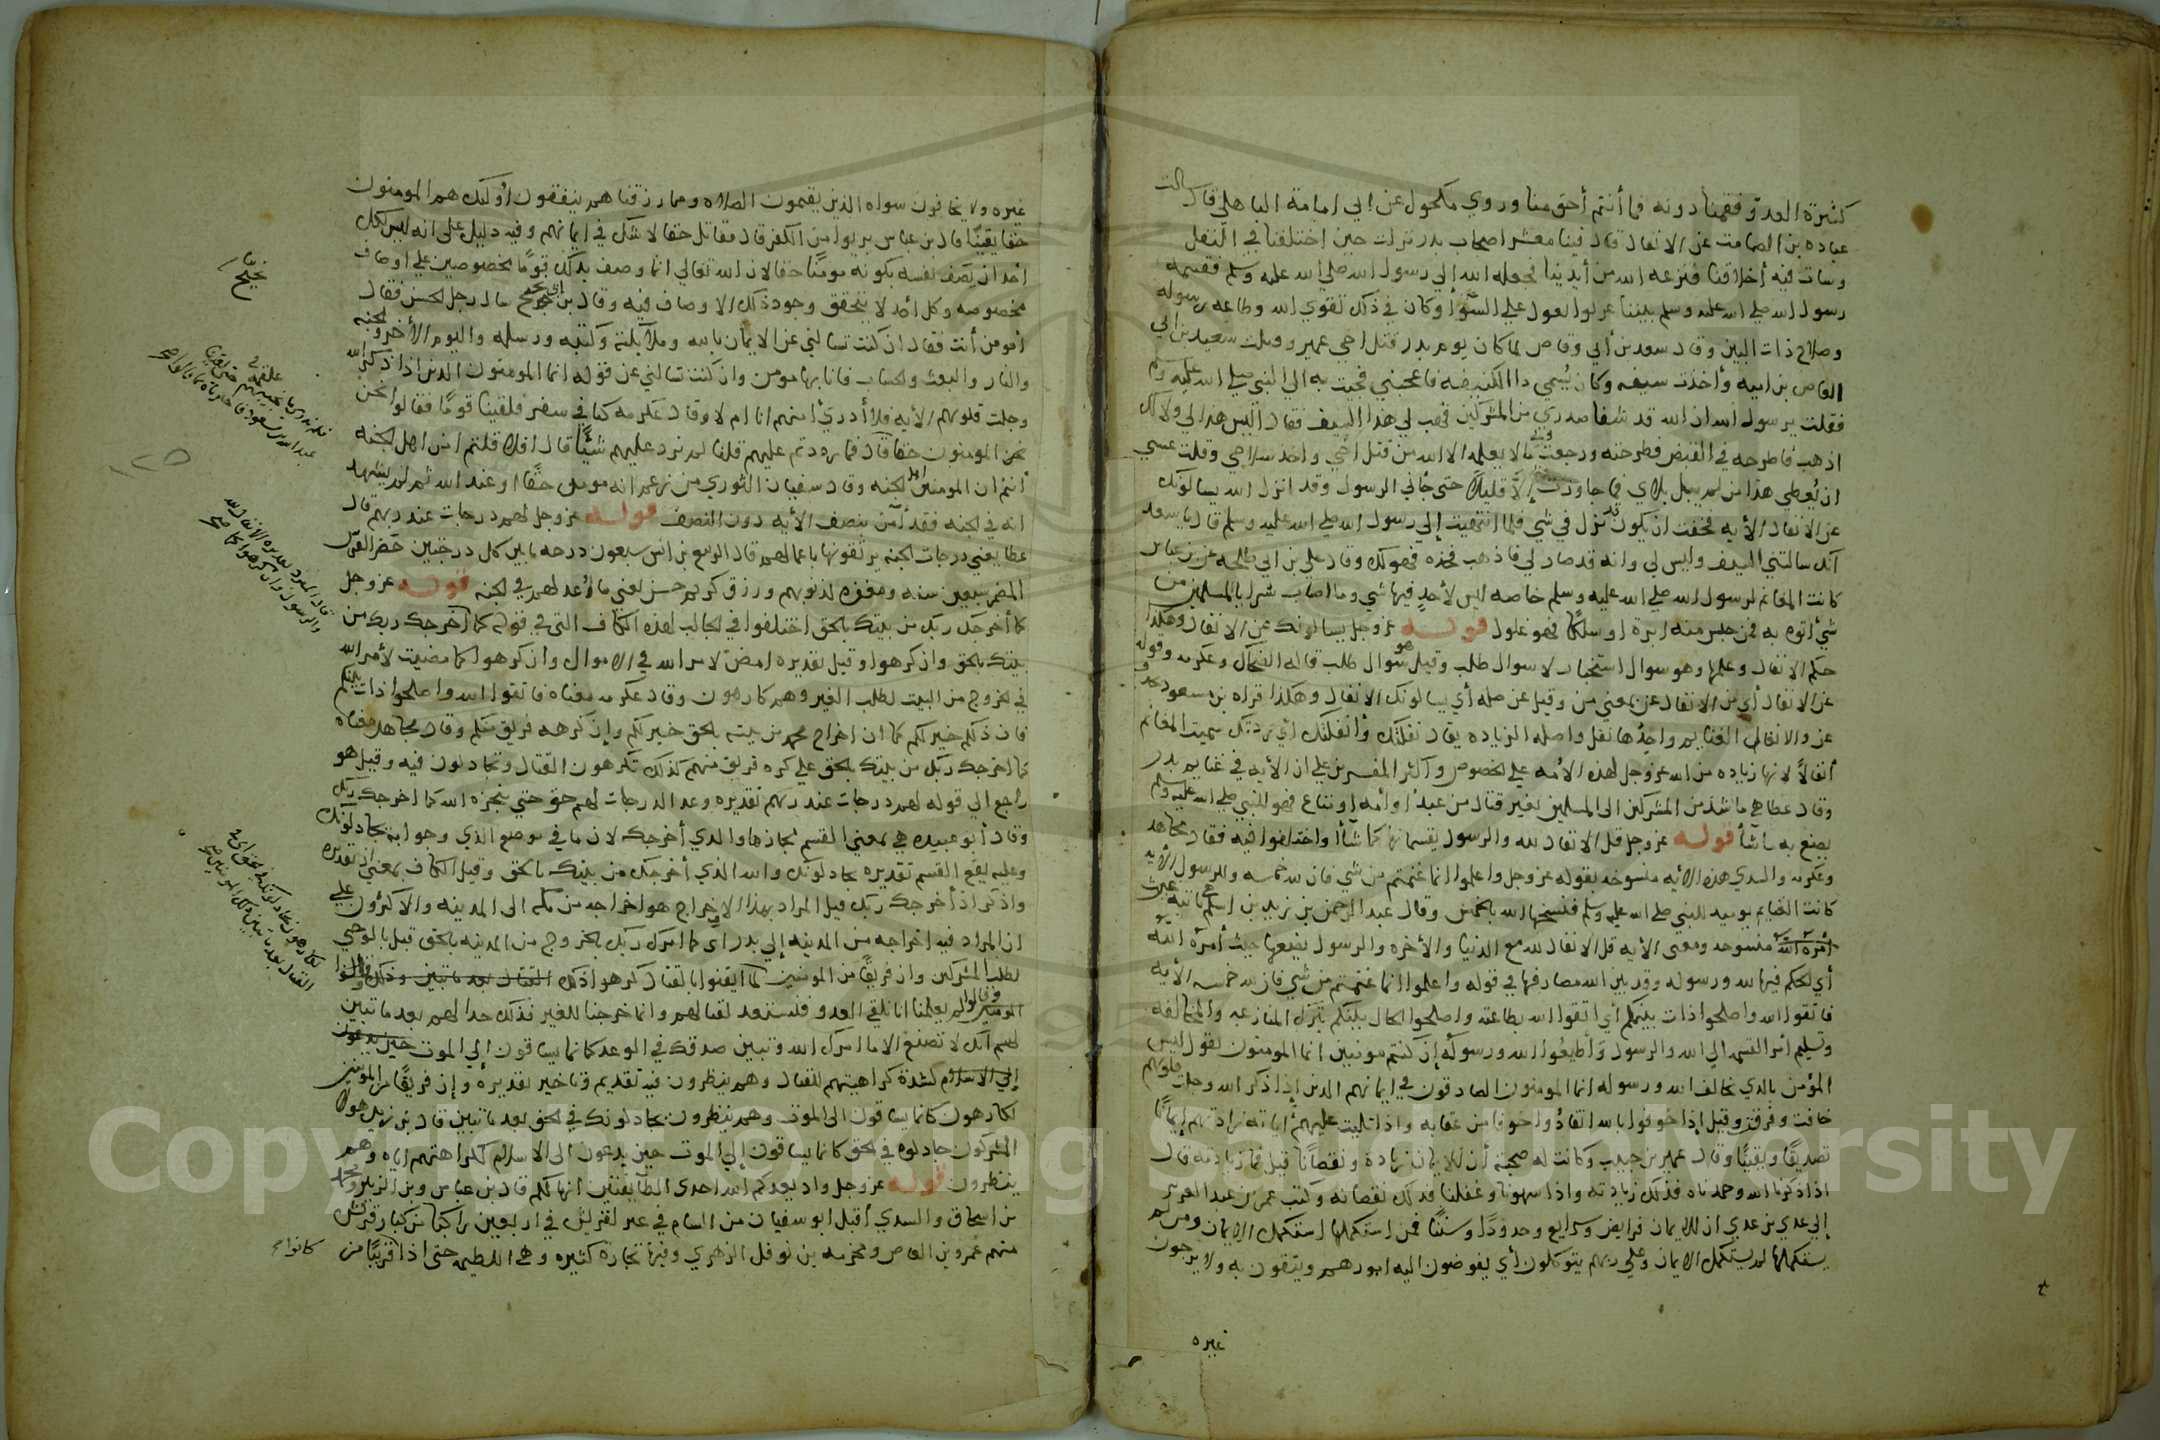 كثيرة العدو فقمنا دونه فما أنتم أحق منا وروي مكحول عن أبي امامة الباهلي قال سالت
عباده بن الصامت عن الانفال قال فينا معشر اصحاب بدر نزلت حين إختلفنا في النفل
وسات فيه أخلاقنا فنزعه الله من أيدينا فجعله الله إلي رسول الله صلي الله عليه وسلم فقسمه
رسول الله صلي الله عليه وسلم بيننا عن بوا يقول علي السوا وكان في ذلك تقوي الله وطاعه رسوله
وصلاح ذات البين وقال سعد بن أبي وقاص لما كان يوم بدر قتل اخي عمير وقتلت سعيد بن ابي
العاص بن اميه وأخذت سيفه وكان يُسمي ذا الكتيفه فاعجبني فجيت به الي النبي صلي الله عليه وسلم
فقلت يرسول الله ان الله قد شفا صدري من المشركين فهب لي هذا السيف فقال ليس هذا لي ولا لك
اذهب فاطرحه في القبض فطرحته ورجعت وبي ما لا يعلمه الا الله من قتل أخي واخذ سلاحي وقلت عسي
ان يُعطي هذا من لم يبل بلاي فما جاوزت إلا قليلا حتي جاني الرسول وقد انزل الله يسالونك
عن الانفال الأيه فخفت ان يكون قد نزل في شي فلما انتهيت إلي رسول الله صلي الله عليه وسلم قال يا سعد
انك سالتني السيف وليس لي وانه قد صار لي فاذهب فخذه فهو لك وقال علي بن ابي طلحه عن بن عباس
كانت المغانم لرسول الله صلي الله عليه وسلم خاصه ليس لأحدٍ فيها شي وما اصاب سرايا المسلمين من
شي أتوه به فمن حبس منه ابرة او سلكا فهو غلول قوله عز وجل يسالونك عن الانفال وهكذا
حكم الانفال وعلمها وهو سوال استخبار لا سوال طلب وقيل هو سوال طلب قاله الضحاك وعكرمه وقوله
عن الانفال أي من الانفال عن بمعني من وقيل عن صله أي يسالونك الانفال وهكذا قراه بن مسعود بحذف
عن والانفال الغنايم واحدُها نفل واصله الزياده يقال نفلتك وأنفلتك أي زدتك سميت المغانم
أنفالاً لانها زياده من الله عز وجل لهذه الأمه علي الخصوص واكثر المفسرين علي ان الأيه في غنايم بدر
وقال عطا هي ما شذ من المشركين الي المسلمين بغير قتال من عبدٍ او أمه او متاع فهو للنبي صلي الله عليه وسلم
يصنع به ما شأ قوله عز وجل قل الانفال لله والرسول يقسمانها كما شآأ واختلفوا فيه فقال مجاهد
وعكرمه والسدي هذه الأيه منسوخه بقوله عز وجل واعلموا انما غنمتم من شي فان لله خمسه وللرسول الأيه
كانت الغنايم يوميد للنبي صلي الله عليه وسلم فنسخها الله بالخمس وقال عبد الرحمن بن زيد بن اسلم هي ثابته غير
منسوخه ومعني الأيه قل الانفال لله مع الدنيا والأخره والرسول يضعها حيث أمره الله
أي لحكم فيها لله ورسوله وقد بين الله مصارفها في قوله واعلموا انما غنمتم من شي فان لله خمسه الأيه
فاتقوا الله واصلحوا ذات بينكم أي اتقوا الله بطاعته واصلحوا الحال بينكم بترك المنازعه والمخالفه
وتسليم امر القسمه الي الله والرسول وأطيعوا الله ورسوله إن كنتم مومنين انما المومنون يقول ليس
المؤمن بالذي يخالف الله ورسوله انما المومنون الصادقون في ايمانهم الذين إذا ذكر الله وجلت قلوبهم
خافت وفرقت وقيل إذا خوفوا بالله انقادُوا خوفا من عقابه واذا تليت عليهم أياته زادتهم إيمانًا
تصديقًا ويقينًا وقال عمير بن حبيب وكانت له صحبة أن للايمان زيادة ونقصانا قيل فما زيادته قال
اذا ذكرنا الله وحمدناه فذلك زيادته واذا سهونا وغفلنا فذلك نقصانه وكتب عمر بن عبد العزيز
إلي عدي بن عدي ان للايمان فرايض وشرايع وحدودًا وسننًا فمن استكملها استكمل الايمان ومن لم
يستكملها لم يستكمل الايمان وعلي ربهم يتوكلون أي يفوضون اليه امورهم ويثقون به ولا يرجون
غيره
غيره ولا يخافون سواه الذين يقيمون الصلاه ومما رزقناهم ينفقون أولئك هم المومنون
حقا يقينًا قال بن عباس بريوا من الكفر قال مقاتل حقا لا شك في ايمانهم وفيه دليل علي انه ليس لكل
أحد ان يصف نفسه بكونه مومنًا حقا لان الله تعالي انما وصف بذلك قومًا مخصوصين علي اوصاف
مخصوصه وكل أحد لا يتحقق وجود ذلك الاوصاف فيه وقال بن ابي نجيح سال رجل الحسن فقال
أمومن أنت فقال ان كنت تسالني عن الايمان بالله وملايكته وكتبه ورسله واليوم الأخر والجنه
والنار والبعث والحساب فانا بها مومن وان كنت تسالني عن قوله انما المومنون الذين اذا ذكر الله
وجلت قلوبهم الأيه فلا أدري أمنهم انا ام لا وقال علقمه كنا في سفر فلقينا قومًا فقالوا نحن
نحن المومنون حقا قال فما رددتم عليهم قلنا لم نرد عليهم شيئًا قال افلا قلتم امن اهل الجنه
أنتم ان المومنين اهل الجنه وقال سفيان الثوري من زعم انه مومن حقًا او عند الله ثم لم يشهد
انه في الجنه فقد أمن بنصف الأيه دون النصف قوله عز وجل لهم درجات عند ربهم قال
عطا يعني درجات الجنه يرتقونها باعمالهم قال الربيع بن انس سبعون درجه ما بين كل درجتين حضر الفرس
المضمر سبعين سنه ومغفره لذنوبهم ورزق كريم حسن يعني ما أعد لهم في الجنه قوله عز وجل
كما أخرجك ربك من بيتك بالحق اختلفوا في الجالب لهذه الكاف التي في قوله كما آخرجك ربك من
بيتك بالحق وان كرهوا وقيل تقديره امض لامر الله في الاموال وان كرهوا كما مضيت لأمر الله
في الخروج من البيت لطلب العير وهم كارهون وقال عكرمه معناه فاتقوا الله واصلحوا ذات بينكم
فان ذلكم خير لكم كما ان اخراج محمد من بيته بالحق خير لكم وإن كرهه فريق منكم وقال مجاهد معناه
كما اخرجك ربك من بيتك بالحق علي كره فريق منهم كذلك تكرهون القتال وتجادلون فيه وقيل هو
راجع الي قوله لهم درجات عند ربهم تقديره وعد الدرجات لهم حق حتي ينجزه الله كما اخرجك ربك
وقال أبو عبيده هي بمعني القسم مجازها والذي أخرجك لان ما في موضع الذي وجوابه يجادلونك
وعليه يقع القسم تقديره يجادلونك والله الذي أخرجك من بيتك بالحق وقيل الكاف بمعني اذ تقديره
واذكر اذ أخرجك ربك قيل المراد بهذا الإخراج هو اخراجه من مكه الي المدينه والأكثرون علي
ان المراد فيه إخراجه من المدينه إلي بدر اي كما امرك ربك بالخروج من المدينه بالحق قيل بالوحي
لطلب المشركين وان فريقًا من المومنين لما أيقنوا بالقتال كرهوا ذلك القتال بعد ما تبين وذلك ان
المومنين وقالوا لم يعلمنا انا نلقي العدو فنستعد لقتالهم وانما خرجنا للعير فذلك جدالهم بعد ما تبين
لهم انك لا تصنع الا ما امرك الله وتبين صدقك في الوعد كانما يساقون إلي الموت حين يدعون
إلي الاسلام لشدة كراهيتهم للقتال وهم ينظرون فيه تقديم وتاخير تقديره وإن فريقًا من المومنين
لكارهون كانما يساقون الي الموت وهم ينظرون يجادلونك في الحق بعد ما تبين قال بن زيد هولا
المشركون جادلوه في الحق كانما يساقون إلي الموت حين يدعون الي الاسلام لكراهتهم اياه وهم
ينظرون قوله عز وجل واذ يعدكم الله احدي الطايفتين انها لكم قال بن عباس وبن الزبير ومحمد
بن اسحاق والسدي أقبل ابو سفيان من الشام في عير لقريش في اربعين راكبا من كفار قريش
منهم عمرو بن العاص ومخرمه بن نوفل الزهري وفيها تجارة كثيره وهي اللطيمه حتي اذا قريبًا من
كانوا
نجيح